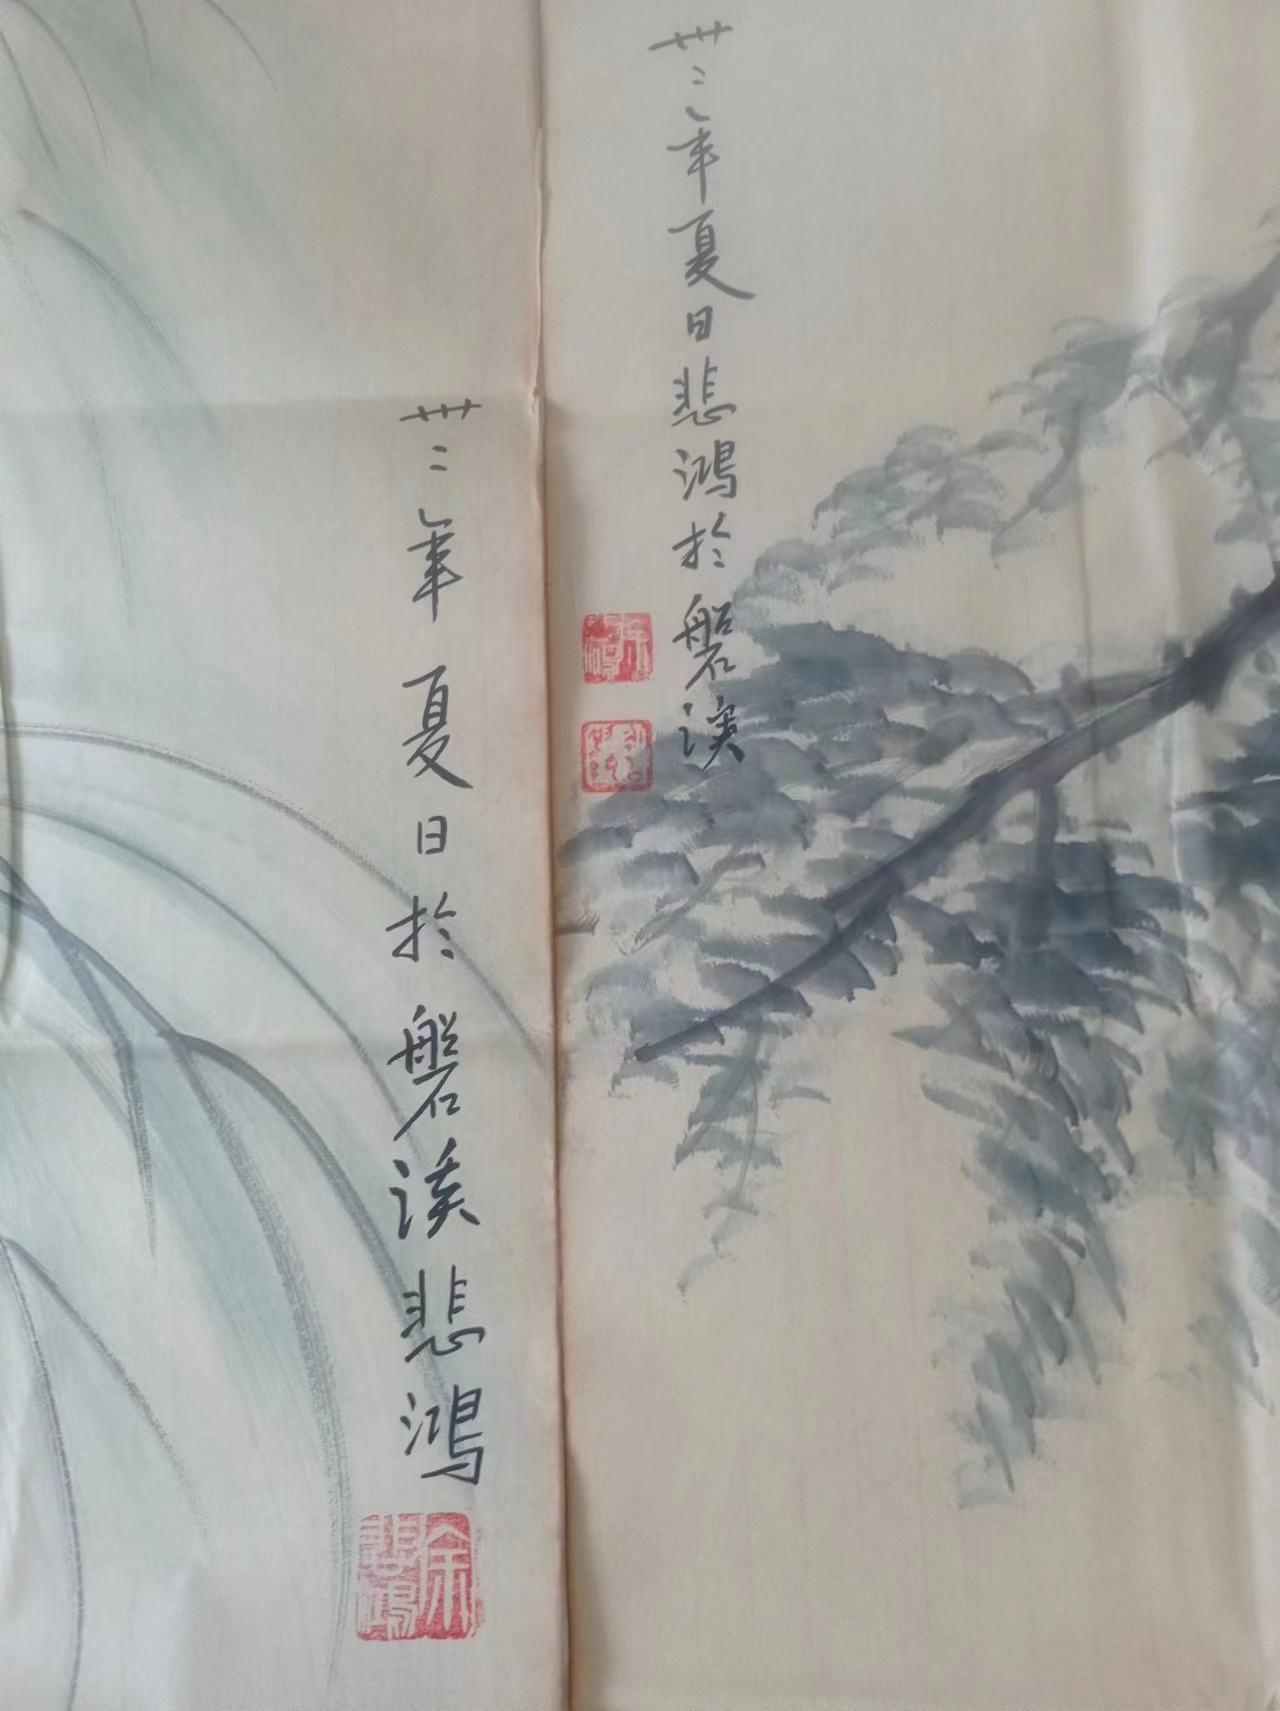 卅二年夏日悲鴻於磐溪
卅二年夏日於磐溪悲鴻
徐悲鴻